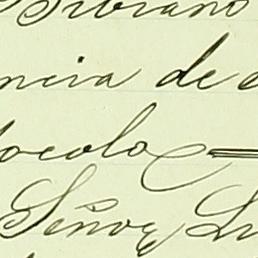 Bibiano
ncia de
tocolo
Señor Lu